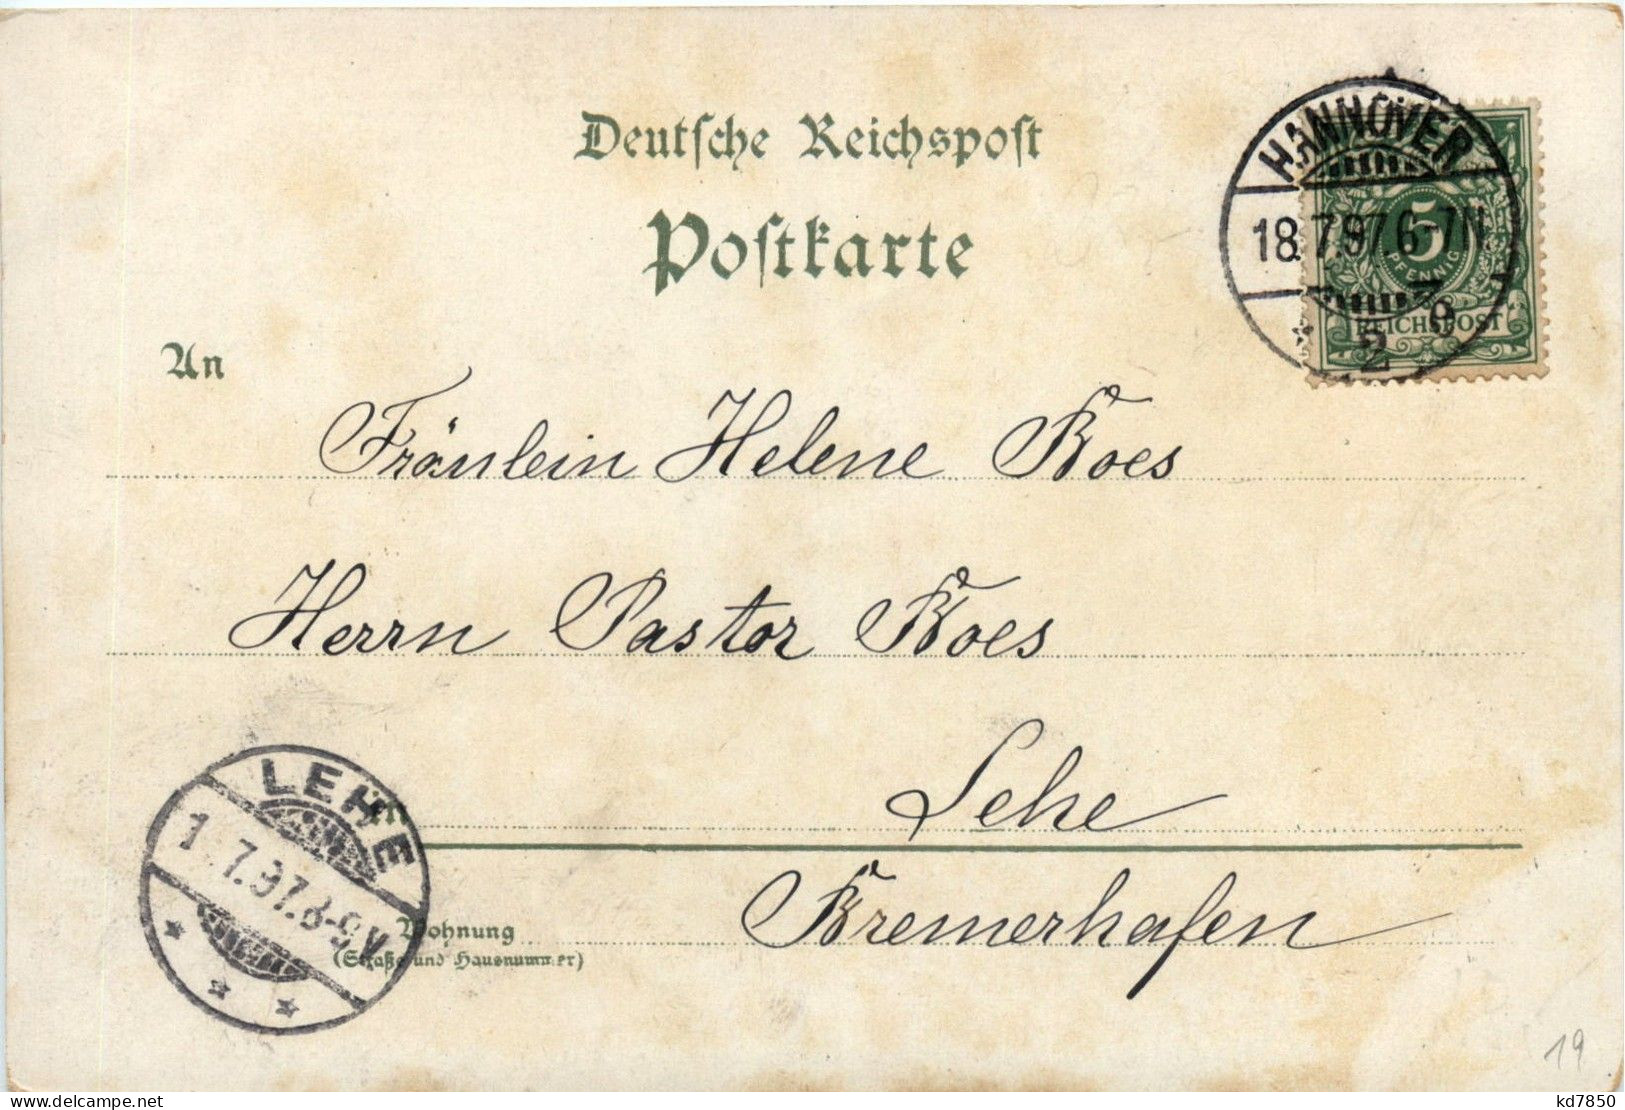 Deutsche Reichspost
Postkarte
HANNOVER
18.7.97.6-7N
2 e
5
PFENNIG
REICHSPOST
An
Fräulein Helene Boes
Herrn Pastor Boes
Lehe
Bremerhafen
LEHE
1 .7.97.8-9V
Wohnung
(Straße und Hausnummer)
19
delcampe.net
kd7850